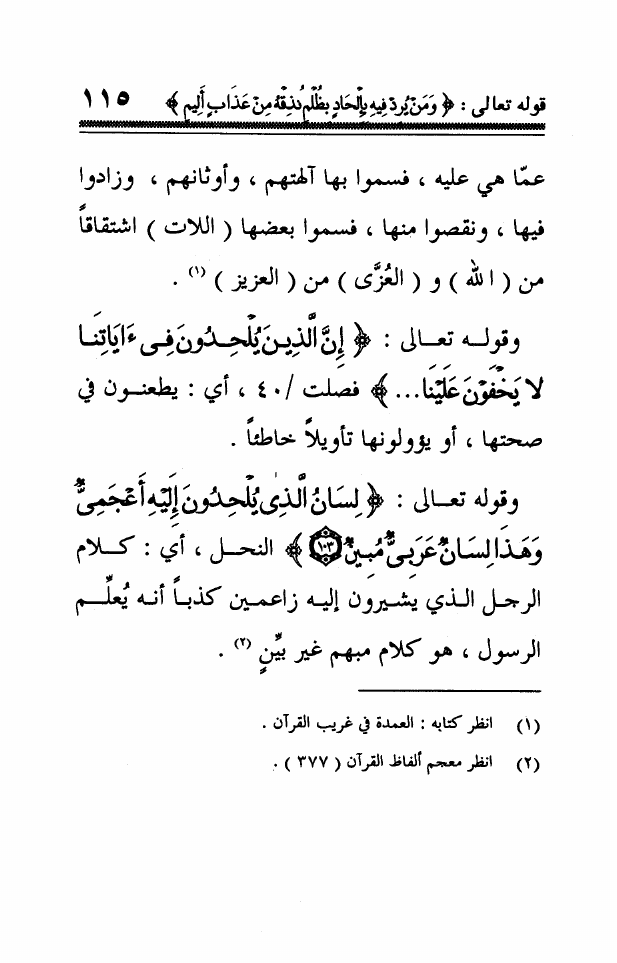 قوله تعالى : ﴿ وَمَنْ يُرِدْ فِيهِ بِإِلْحَادٍ بِظُلْمٍ نُذِقْهُ مِنْ عَذَابٍ أَلِيمٍ ﴾ ١١٥
عمّا هي عليه ، فسموا بها آلهتهم ، وأوثانهم ، وزادوا
فيها ، ونقصوا منها ، فسموا بعضها ( اللات ) اشتقاقاً
من ( الله ) و ( العُزَّى ) من ( العزيز ) (١) .
وقوله تعالى : ﴿ إِنَّ الَّذِينَ يُلْحِدُونَ فِى ءَايَاتِنَا
لَا يَخْفَوْنَ عَلَيْنَا... ﴾ فصلت /٤٠ ، أي : يطعنون في
صحتها ، أو يؤولونها تأويلاً خاطئاً .
وقوله تعالى : ﴿ لِسَانُ الَّذِى يُلْحِدُونَ إِلَيْهِ أَعْجَمِىٌّ
وَهَذَا لِسَانٌ عَرَبِىٌّ مُبِينٌ ١٠٣ ﴾ النحل ، أي : كلام
الرجل الذي يشيرون إليه زاعمين كذباً أنه يُعلِّم
الرسول ، هو كلام مبهم غير بيِّنٍ (٢) .
(١) انظر كتابه : العمدة في غريب القرآن .
(٢) انظر معجم ألفاظ القرآن ( ٣٧٧ ) .